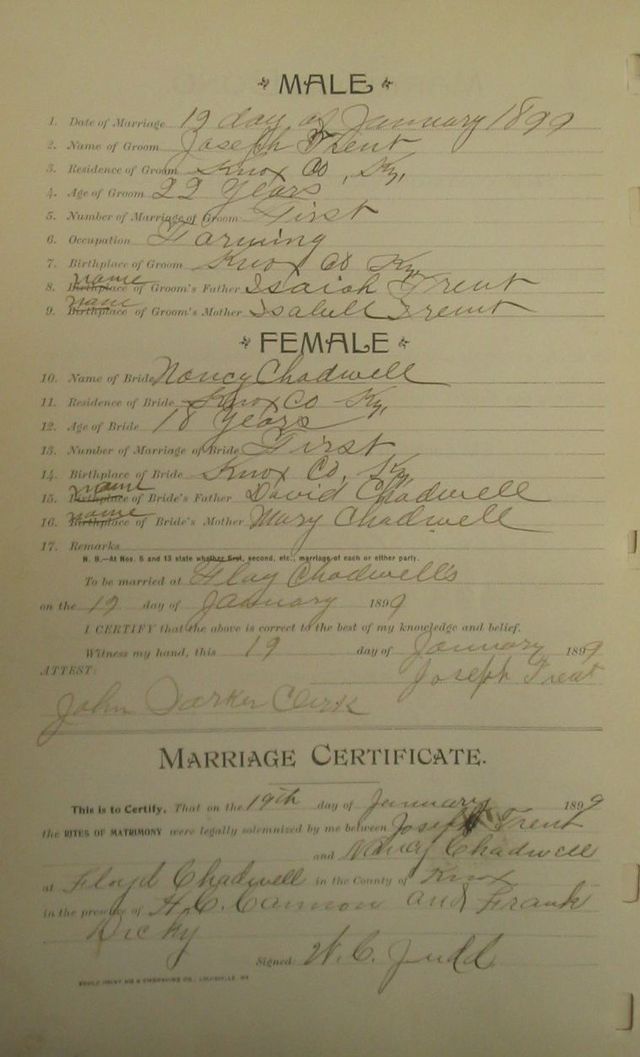 MALE
1. Date of Marriage 19 day of January 1899
2. Name of Groom Joseph Trent
3. Residence of Groom Knox Co, Ky,
4. Age of Groom 22 Years
5. Number of Marriage of Groom First
6. Occupation Farming
7. Birthplace of Groom Knox Co Ky
name
8. Birthplace of Groom's Father Isaiah Trent
name
9. Birthplace of Groom's Mother Isabell Trent
FEMALE
10. Name of Bride Nancy Chadwell
11. Residence of Bride Knox Co Ky,
12. Age of Bride 18 Years
13. Number of Marriage of Bride First
14. Birthplace of Bride Knox Co, Ky
name
15. Birthplace of Bride's Father David Chadwell
name
16. Birthplace of Bride's Mother Mary Chadwell
17. Remarks
N. B.—At Nos. 5 and 13 state whether first, second, etc., marriage of each or either party.
To be married at Chadwell's
on the 19 day of January 1899
I CERTIFY that the above is correct to the best of my knowledge and belief.
Witness my hand, this 19 day of January 1899
ATTEST: Joseph Trent
John Parker Clerk
MARRIAGE CERTIFICATE.
This is to Certify, That on the 19th day of January 1899
the RITES OF MATRIMONY were legally solemnized by me between Joseph Trent
and Nancy Chadwell
at Floyd Chadwell in the County of Knox
in the presence of H. C. Cannon and Frank
Dicky
Signed: W. C. Judd